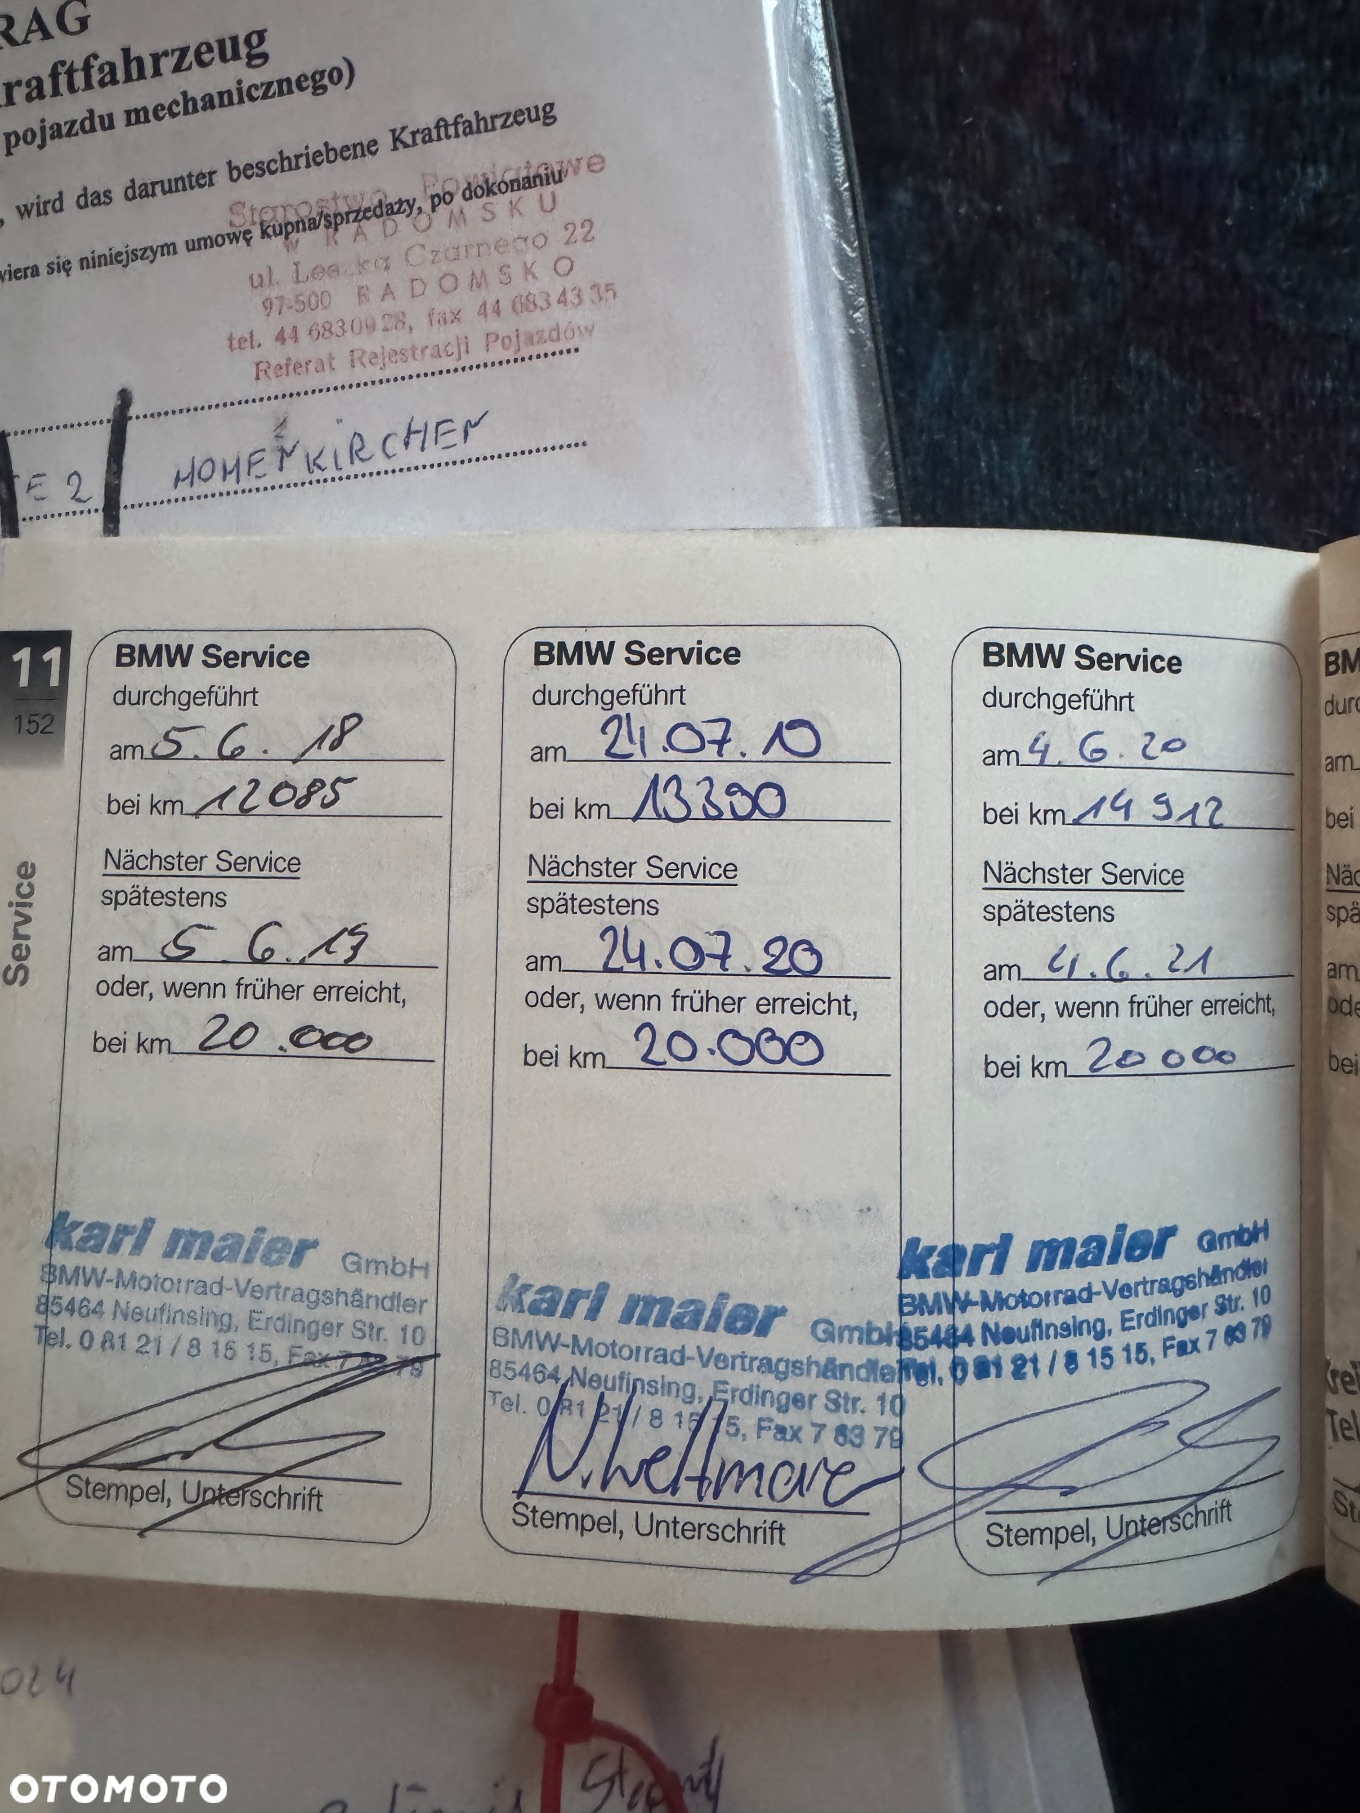 RAG
raftfahrzeug
pojazdu mechanicznego)
, wird das darunter beschriebene Kraftfahrzeug
wiera się niniejszym umowę kupna/sprzedaży, po dokonaniu
Starostwo Powiatowe
w RADOMSKU
ul. Leszka Czarnego 22
97-500 RADOMSKO
tel. 44 6830928, fax 44 6834335
Referat Rejestracji Pojazdów
E 2 HOHENKIRCHEN
11
152
Service
BMW Service
durchgeführt
am 5.6.18
bei km 12085
Nächster Service
spätestens
am 5.6.19
oder, wenn früher erreicht,
bei km 20.000
karl maier GmbH
BMW-Motorrad-Vertragshändler
85464 Neufinsing, Erdinger Str. 10
Tel. 0 81 21 / 8 15 15, Fax 7 63 79
Stempel, Unterschrift
BMW Service
durchgeführt
am 24.07.10
bei km 13390
Nächster Service
spätestens
am 24.07.20
oder, wenn früher erreicht,
bei km 20.000
karl maier GmbH
BMW-Motorrad-Vertragshändler
85464 Neufinsing, Erdinger Str. 10
Tel. 0 81 21 / 8 15 15, Fax 7 63 79
Stempel, Unterschrift
BMW Service
durchgeführt
am 4.6.20
bei km 14912
Nächster Service
spätestens
am 4.6.21
oder, wenn früher erreicht,
bei km 20000
karl maier GmbH
BMW-Motorrad-Vertragshändler
85464 Neufinsing, Erdinger Str. 10
Tel. 0 81 21 / 8 15 15, Fax 7 63 79
Stempel, Unterschrift
BM
durc
am
bei
Näc
spä
am
ode
bei
Tel
St
024
OTOMOTO